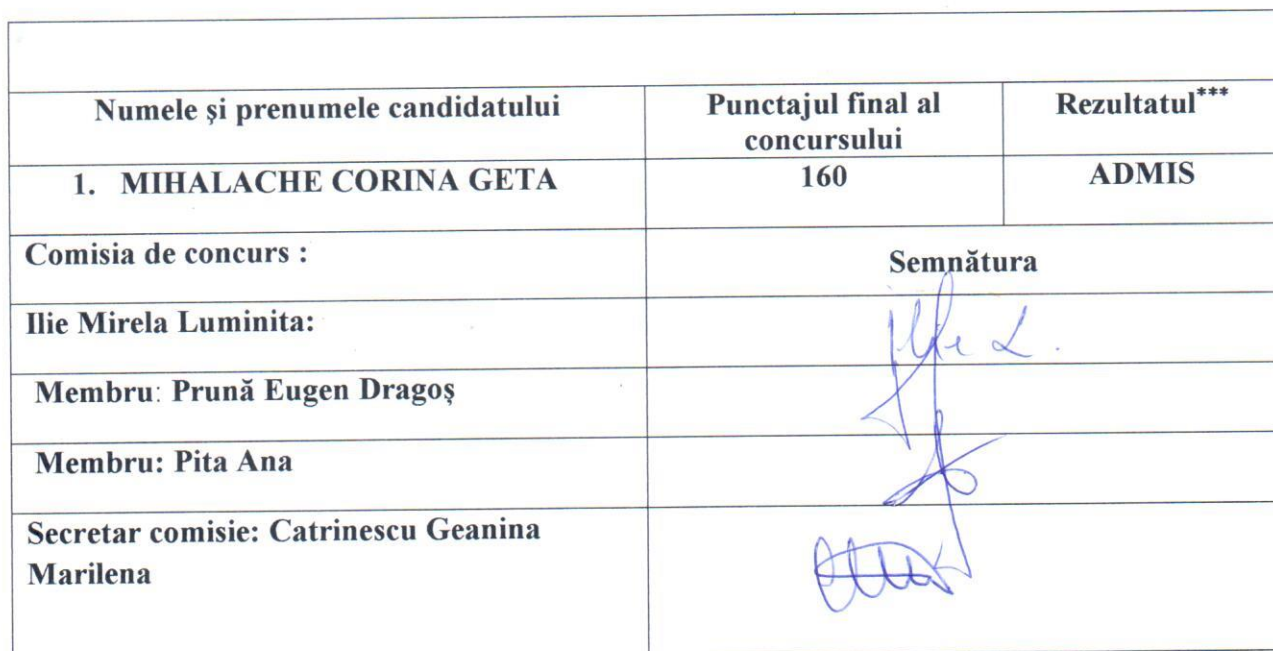 Numele și prenumele candidatului
Punctajul final al
concursului
Rezultatul***
1. MIHALACHE CORINA GETA
160
ADMIS
Comisia de concurs :
Semnătura
Ilie Mirela Luminita:
Ilie L.
Membru: Prună Eugen Dragoș
Membru: Pita Ana
Secretar comisie: Catrinescu Geanina
Marilena